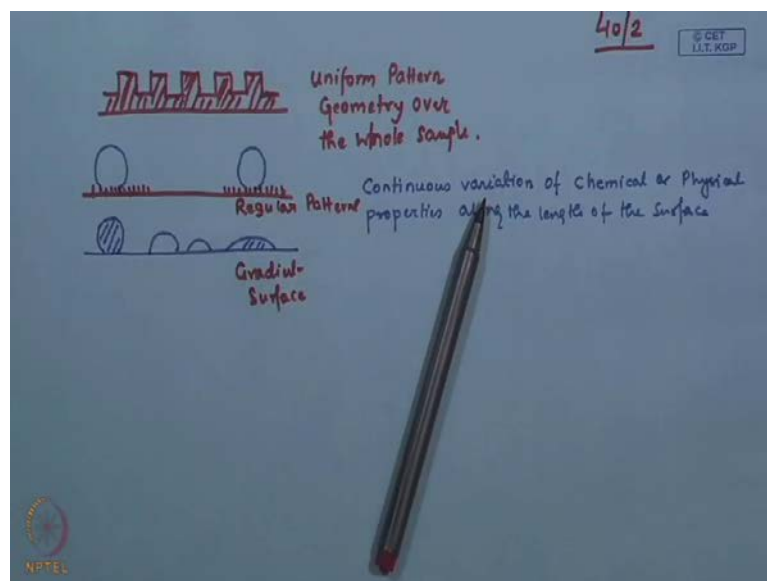 40/2
© CET
I.I.T. KGP
Uniform Pattern
Geometry over
the whole Sample.
Continuous variation of Chemical or Physical
Regular Pattern
properties along the length of the Surface
Gradient
Surface
NPTEL